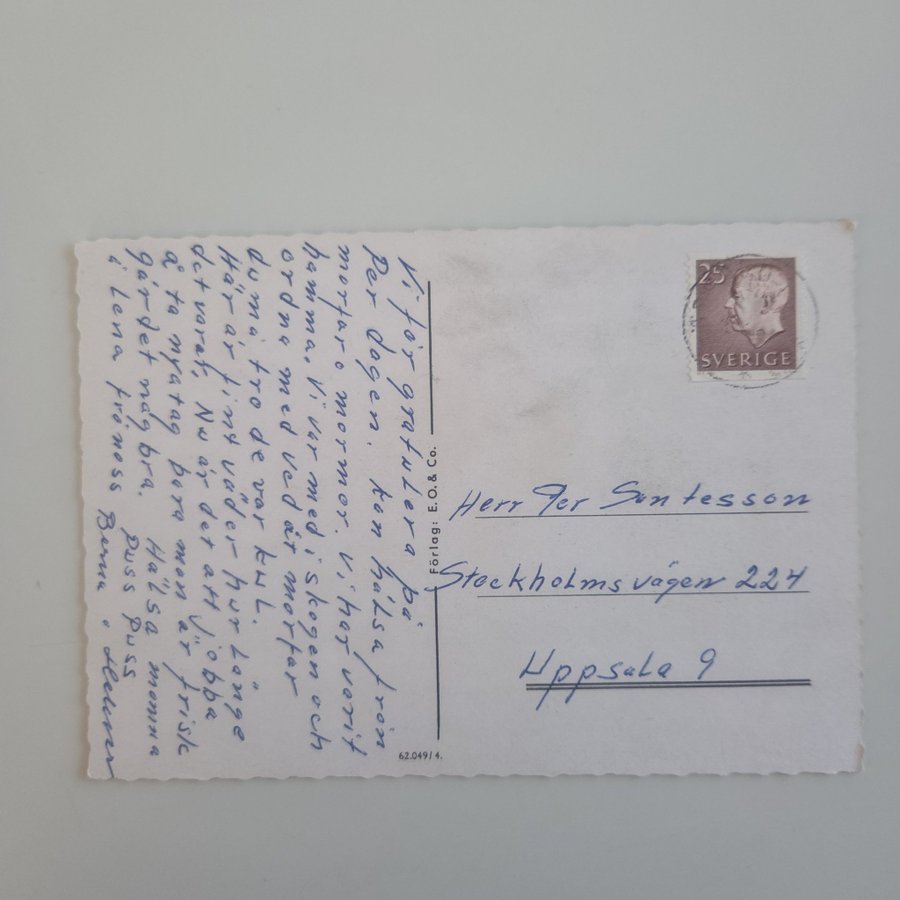 Vi får gratulera på
Per dagen. kan hälsa från
morfar o mormor. vi har varit
hamma, vi var med i skogen och
ordna med ved åt morfar
du må tro de var kul.
Här är fint väder hur länge
det varar, Nu är det att jobba
å ta nya tag bara man är frisk
går det någ bra. Hälsa mamma
å Lena från oss
Puss Puss
25
SVERIGE
Förlag: E. O. & Co.
Herr Per Suntesson
Stockholmsvägen 224
Uppsala 9
62.049/4.